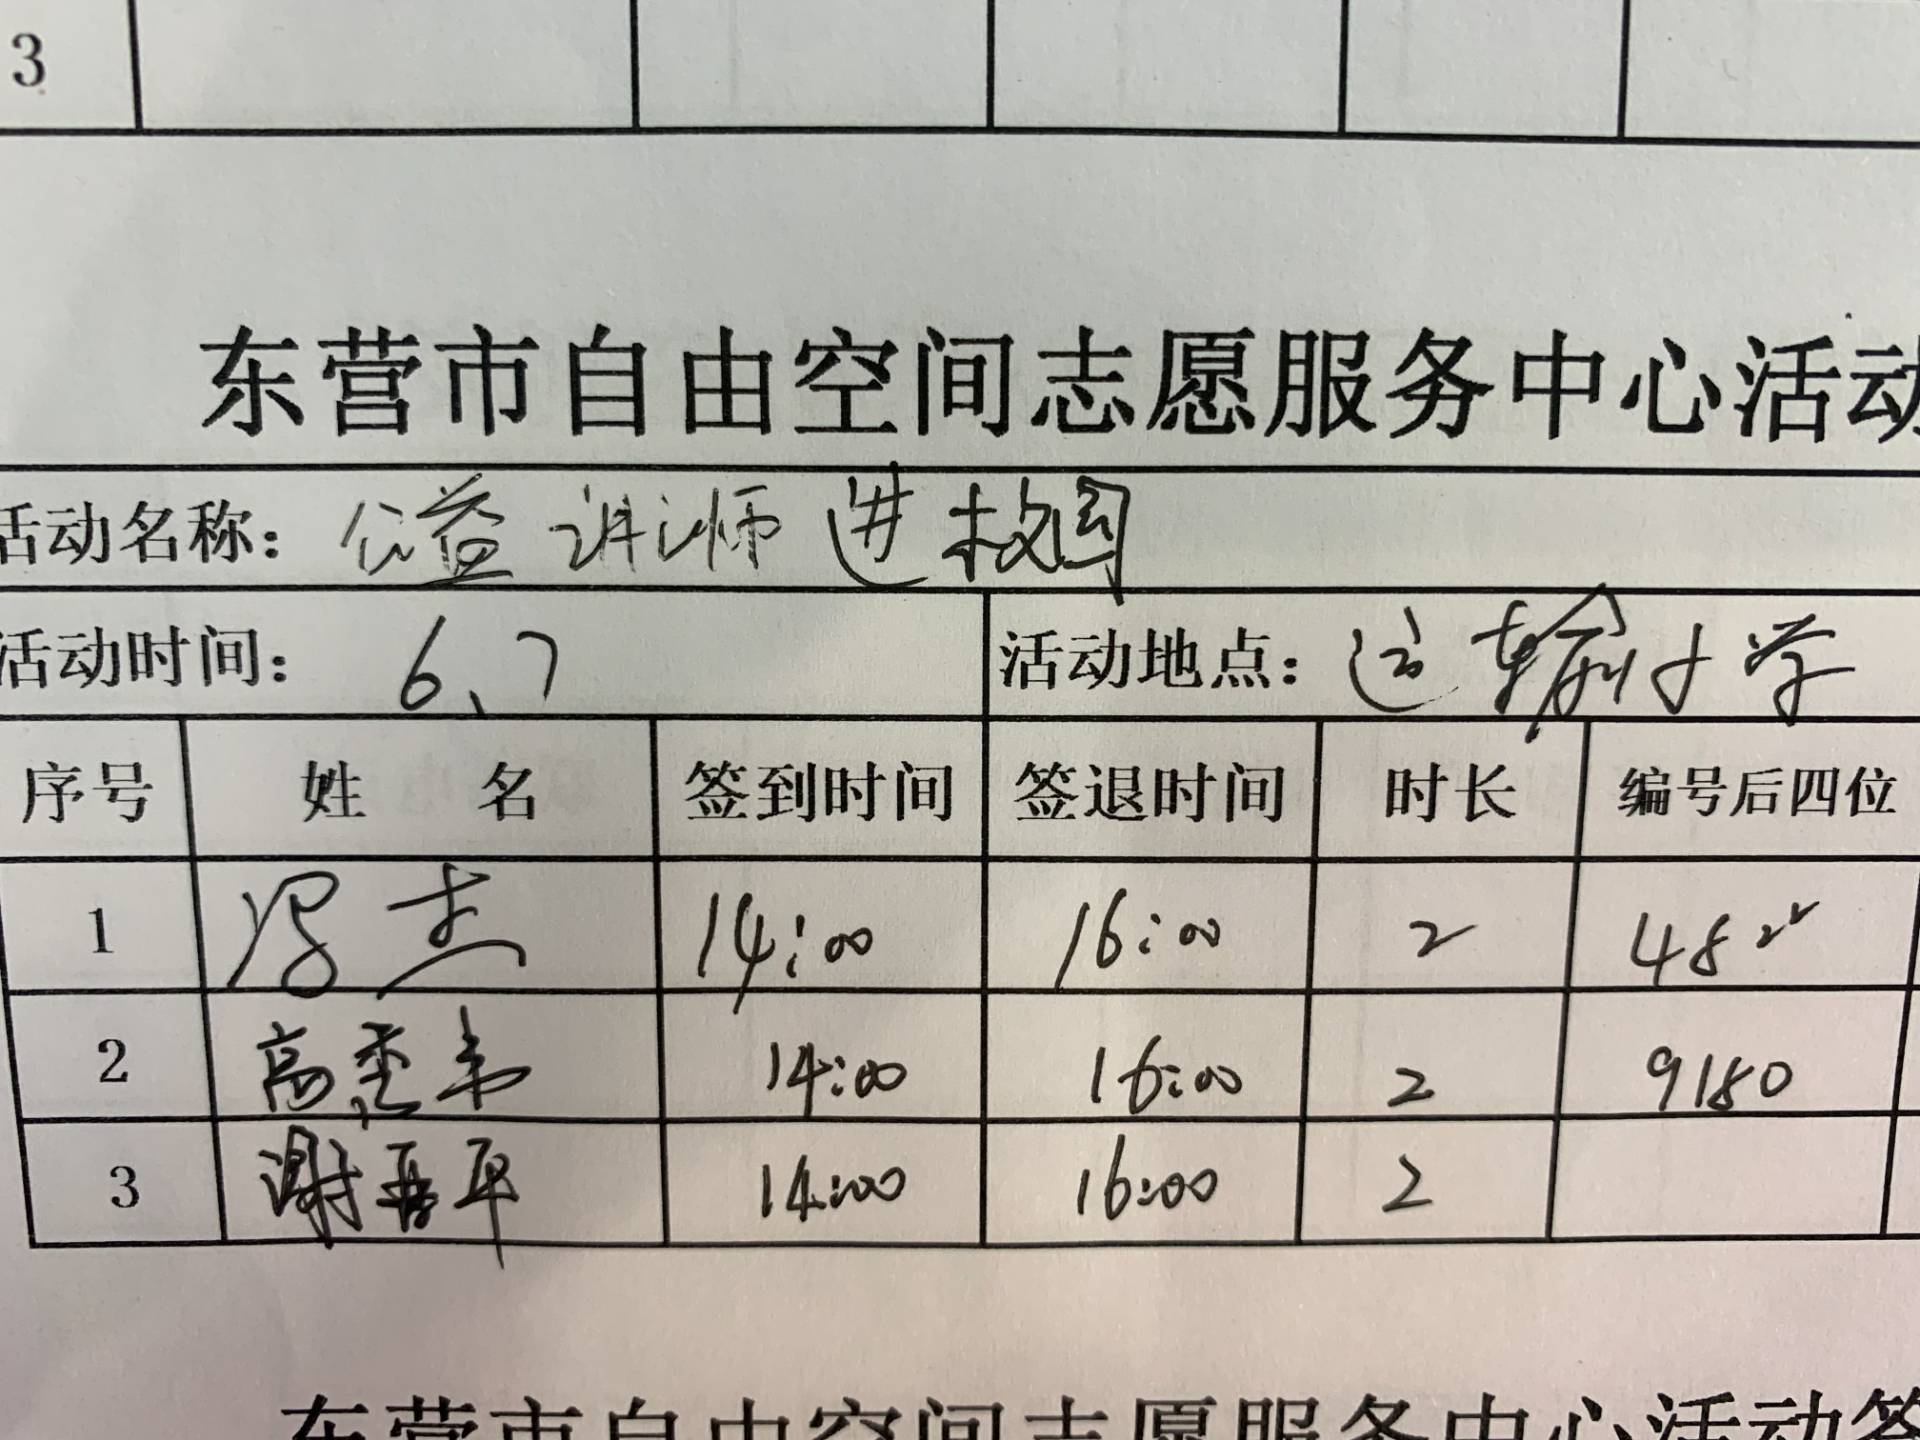 3
东营市自由空间志愿服务中心活动
活动名称: 公益讲师进校园
活动时间: 6、7 活动地点: 运输小学
序号 姓 名 签到时间 签退时间 时长 编号后四位
1 冯杰 14:00 16:00 2 4822
2 高 14:00 16:00 2 9180
3 谢 平 14:00 16:00 2
东营市自由空间志愿服务中心活动签